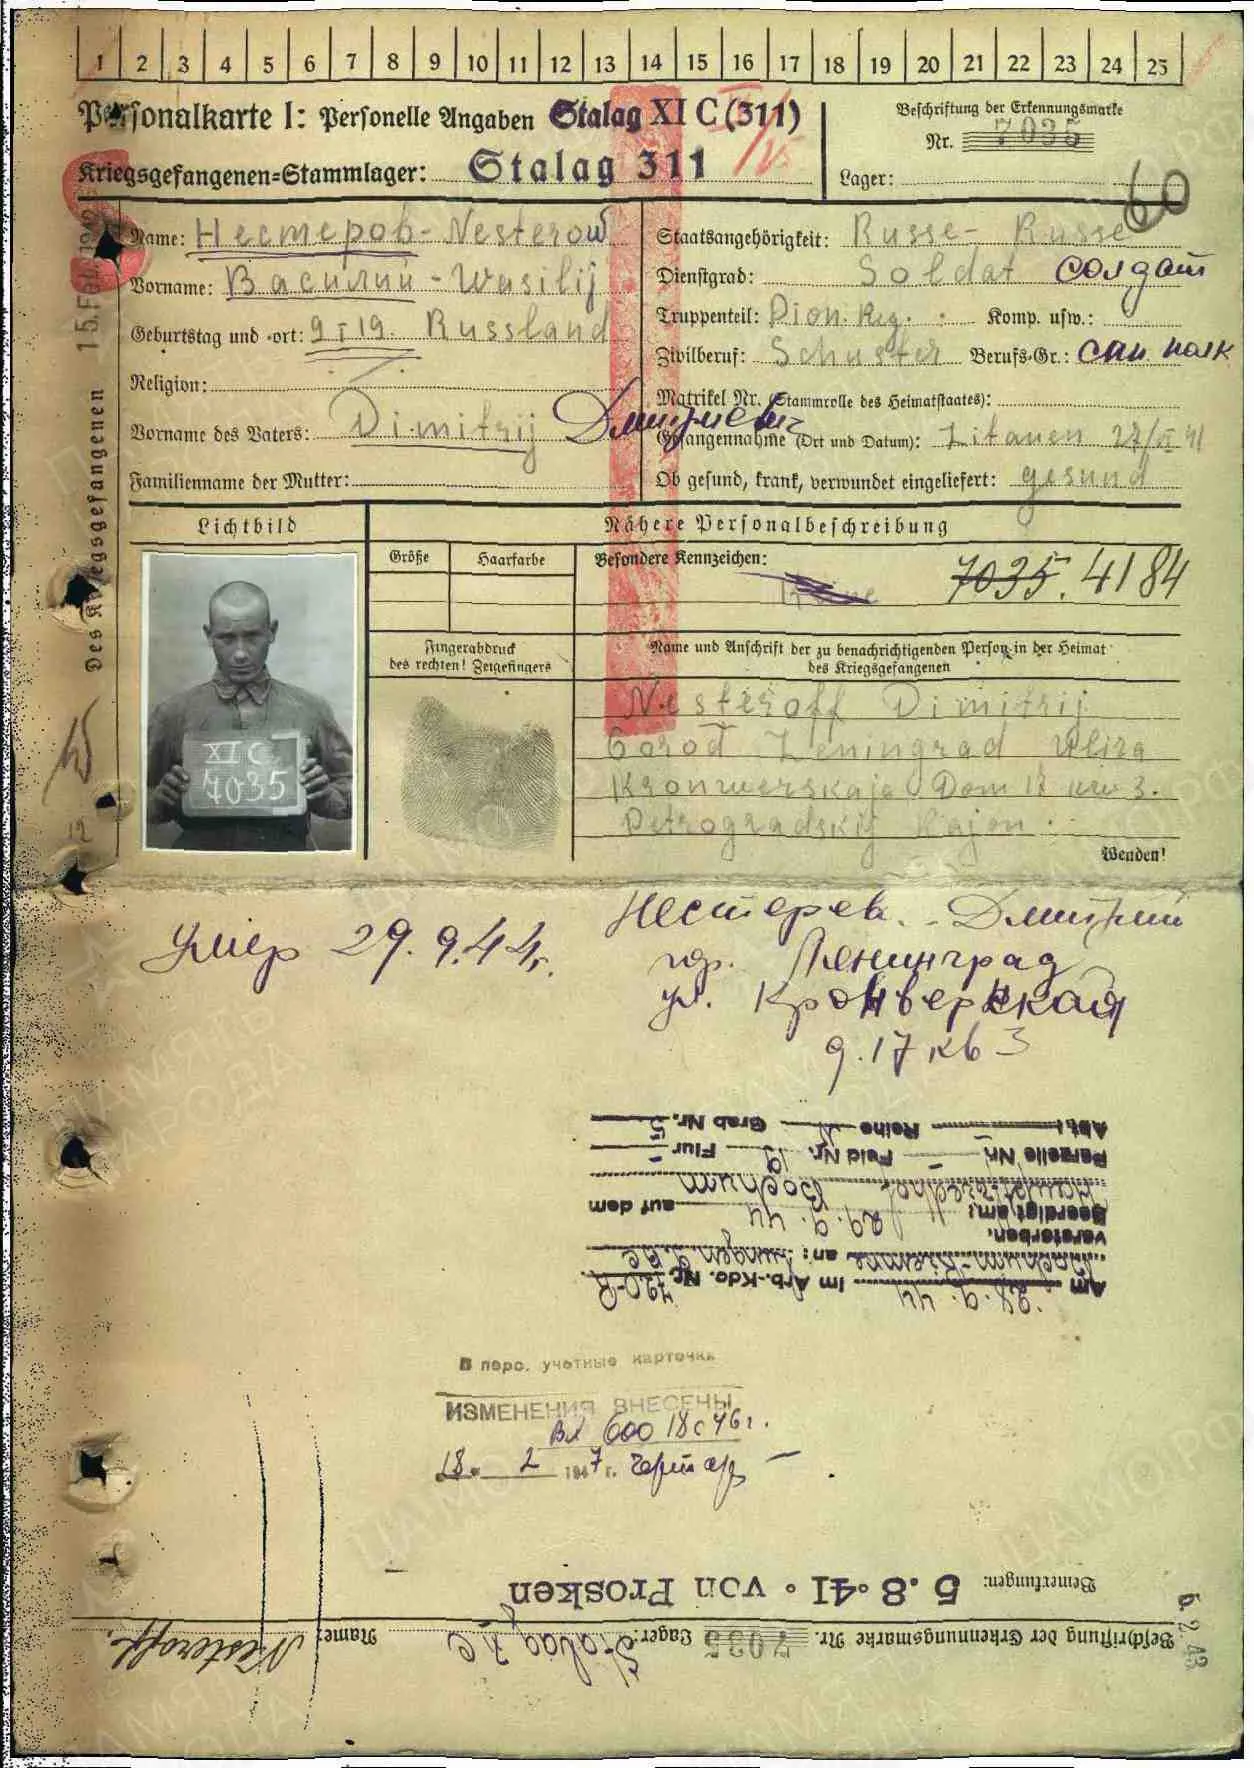 1 2 3 4 5 6 7 8 9 10 11 12 13 14 15 16 17 18 19 20 21 22 23 24 25
Personalkarte I: Personelle Angaben Stalag XI C (311)
Kriegsgefangenen-Stammlager: Stalag 311
Beschriftung der Erkennungsmarke
Nr. 7035
Lager:
60
Des Kriegsgefangenen
Name: Нестеров - Nesterow
Vorname: Василий - Wasilij
Geburtstag und -ort: 9 I 19. Russland
Religion:
Vorname des Vaters: Dimitrij Дмитриевич
Familienname der Mutter:
Staatsangehörigkeit: Russe - Russe
Dienstgrad: Soldat солдат
Truppenteil: Pion. Reg. Komp. usw.:
Zivilberuf: Schuster Berufs-Gr.: сап. полк
Matrikel Nr. (Stammrolle des Heimatstaates):
Gefangennahme (Ort und Datum): Litauen 27/VI 41
Ob gesund, krank, verwundet eingeliefert: gesund
Lichtbild
XI C
7035
Nähere Personalbeschreibung
Größe Haarfarbe Besondere Kennzeichen:
7035. 4184
Fingerabdruck
des rechten! Zeigefingers
Name und Anschrift der zu benachrichtigenden Person in der Heimat
des Kriegsgefangenen
Nesteroff Dimitrij
Gorod Leningrad Uliza
Kronwerskaja Dom 17 kw 3.
Petrogradskij Rajon.
Wenden!
Умер 29.9.44г.
Нестерев. - Дмитрий
гор. Ленинград
ул. Кронверкская
д. 17 кв 3
Am 28.9.44 im Arb.-Kdo. Nr. 720-R
an: Lungen Tbc
verstorben.
Beerdigt am: 29.9.44 auf dem
Hauptfriedhof Bochum
Parzelle Nr. Feld Nr. 19 Flur
Abt.: Reihe Grab Nr. 5
В перс. учетные карточки
ИЗМЕНЕНИЯ ВНЕСЕНЫ
Вх 600 18с 46г.
18. 2 1947г.
Bemerkungen: 5.8.41. von Prosken
Beschriftung der Erkennungsmarke Nr. 7035 Lager: Stalag XI C Name: Nesteroff.